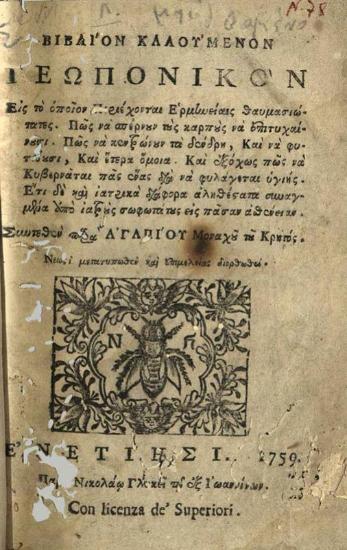 ΒΙΒΛΙ'ΟΝ ΚΑΛΟΥ'ΜΕΝΟΝ
ΓΕΩΠΟΝΙΚΟ'Ν
Εἰς τὸ ὁποῖον περιέχονται Ἑρμηνεῖαις θαυμασιώ-
τατες. Πῶς νὰ σπέρνουν τοὺς καρποὺς νὰ ἐπιτυχαί-
νουσι. Πῶς νὰ κεντρώνουν τὰ δένδρη, Καὶ νὰ φυ-
τεύουσι, Καὶ ἕτερα ὅμοια. Καὶ ἐξόχως πῶς νὰ
Κυβερνᾶται πᾶς ἕνας διὰ νὰ φυλάγεται ὑγιής.
Ἔτι δὲ καὶ ἰατρικὰ διάφορα ἀληθέστατα
ὑπὸ σοφωτάτους εἰς πᾶσαν ἀσθένειαν.
Συντεθὲν παρὰ ἈΓΑΠΙΟΥ Μοναχοῦ τοῦ Κρητός.
Νεωστὶ μετατυπωθὲν καὶ ἐπιμελείας διορθωθέν.
Ν Π
Ε'ΝΕΤΙ'ΗΣΙ. 1759.
Παρὰ Νικολάῳ Γλυκεῖ τῷ ἐξ Ἰωαννίνων.
Con licenza de' Superiori.